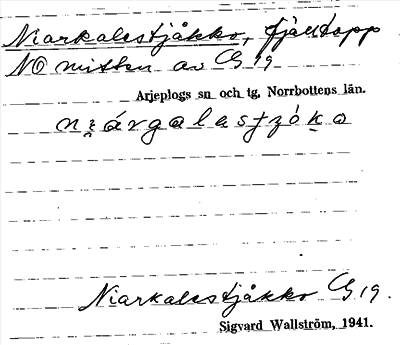 Niarkalestjåkko, fjälltopp
NO mitten av CG 19
Arjeplogs sn och tg. Norrbottens län.
ni̯árgalastʒ́ḱa
Niarkalestjåkko CG 19.
Sigvard Wallström, 1941.